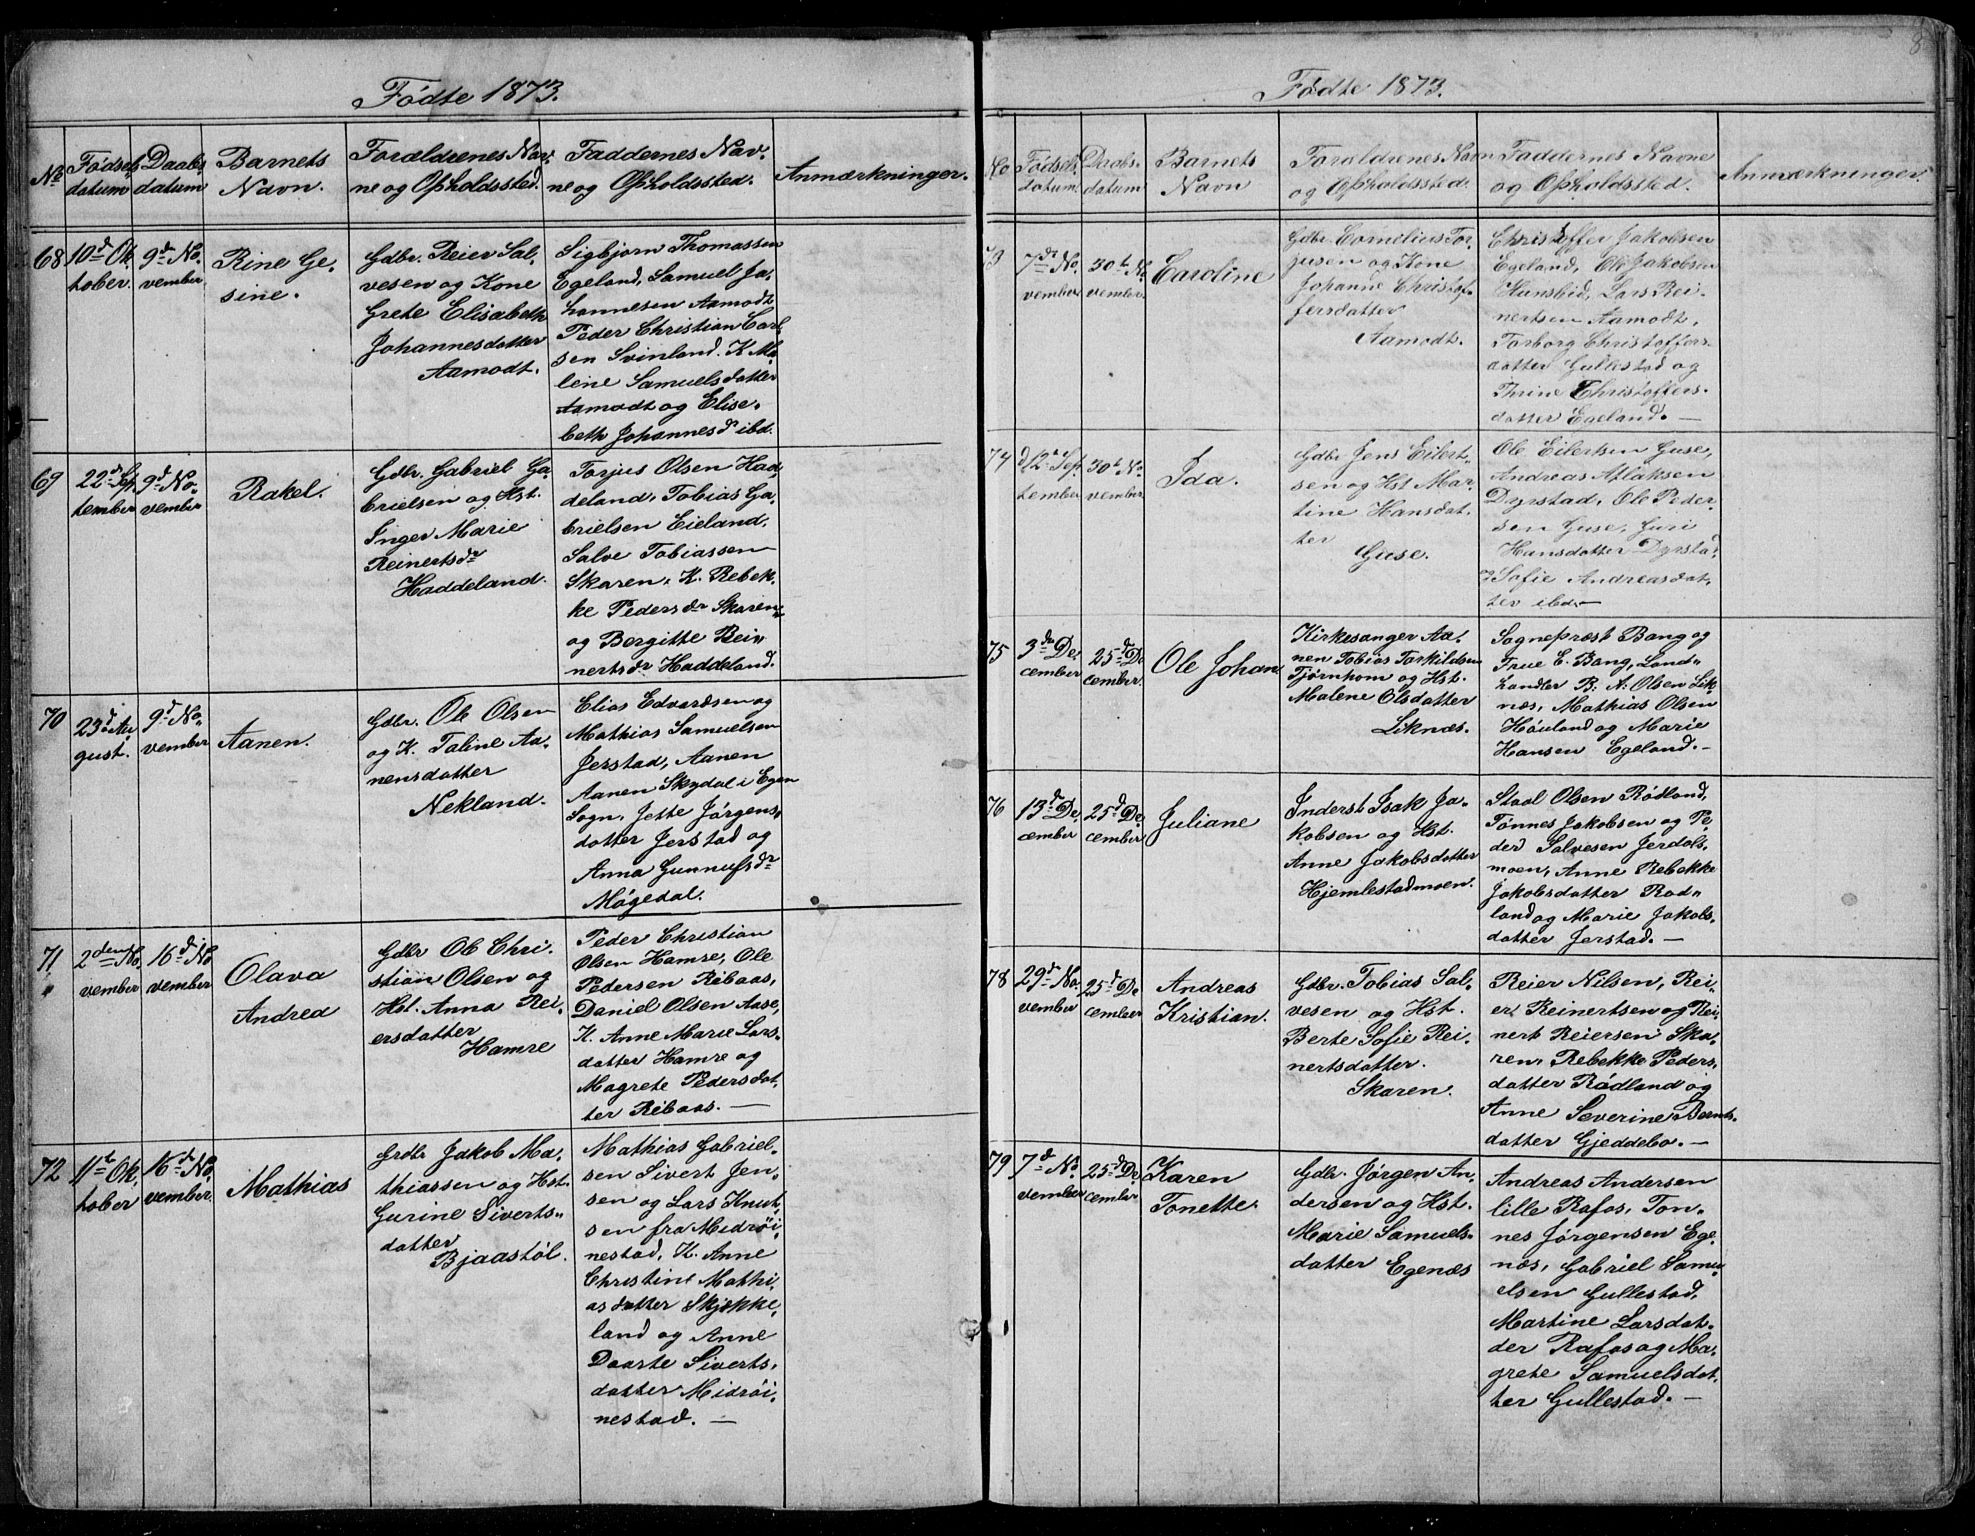 Fødte 1873.
No
Fødsels
datum
Daabs
datum
Barnets
Navn.
Forældrenes Nav,,
ne og Opholdssted.
Faddernes Nav,,
ne og Opholdssted.
Anmærkninger.
68
10d Ok,,
tober.
9d No,,
vember
Rine Ge,,
sine.
Gdbr. Reier Sal,,
vesen og Kone
Grete Elisabeth
Johannesdatter
Aamodt.
Sigbjørn Thomassen
Egeland, Samuel Jo,,
hannesen Aamodt
Peder Christian Carl,,
sen Svinland. K. Ma,,
lene Samuelsdatter
Aamodt og Elise,,
beth Johannesd ibd.
69
22d Sep,,
tember
9d No,,
vember
Rakel.
Gdbr. Gabriel Ga,,
brielsen og Hst.
Inger Marie
Reinertsdr
Haddeland.
Torjus Olsen Had,,
deland, Tobias Ga,,
brielsen Eieland,
Salve Tobiassen
Skaren, K. Rebek,,
ke Pedersdr Skaren
og Bergitte Rei,,
nertsdr Haddeland.
70
23d Au,,
gust.
9d No,,
vember
Aanen.
Gdbr. Ole Olsen
og K. Taline Aa,,
nensdatter
Nekland.
Elias Edvardsen og
Mathias Samuelsen
Jerstad, Aanen
Aanen Skydal i Egen
Sogn, Jette Jørgens,,
datter Jerstad og
Anna Gunnufsdr
Møgedal.
71
2den No,,
vember
16d No
vember
Olava
Andrea
Gdbr Ole Chri,,
stian Olsen og
Hst. Anna Rei,,
ersdatter
Hamre
Peder Christian
Olsen Hamre, Ole
Pedersen Ribaas,
Daniel Olsen Aase,
K. Anne Marie Lars,,
datter Hamre og
Magrete Pedersdat,,
ter Ribaas. —
72
11t Ok,,
tober
16d No,,
vember.
Mathias
Grdbr Jakob Ma,,
thiassen og Hst.
Gurine Siverts,,
datter
Bjaastøl.
Mathias Gabriel,,
sen Sivert Jen,,
sen og Lars Knut,,
sen fra Midrøi,,
nestad, K. Anne
Christine Mathi,,
asdatter Skjekke,,
land og Anne
Daarte Siverts,,
datter Midrøi,,
nestad. —
8
Fødte 1873.
No
Fødsels
datum.
Daabs,,
datum
Barnets
Navn
Forældrenes Navn
og Opholdssted.
Faddernes Navne
og Opholdssted.
Anmærkninger.
73
7de No,,
vember
30t No
vember.
Caroline
Gdbr Cornelius Tor,,
jusen og Kone
Johanne Christof,,
fersdatter
Aamodt.
Christoffer Jakobsen
Egeland, Ole Jakobsen
Hunsbid, Lars Rei,,
nertsen Aamodt,
Torborg Christoffers,,
datter Gullestad og
Thrine Christoffers,,
datter Egeland. —
74
d12t Sep,,
tember
30t No
vember
Ida.
Gdbr Jens Eilert,,
sen og Hst Mar,,
tine Hansdat,,
ter
Guse.
Ole Eilertsen Guse,
Andreas Atlaksen
Dyrstad, Ole Peder,,
sen Guse, Guri
Hansdatter Dyrstad
og Sofie Andreasdat,,
ter ibd. —
75
3de De,,
cember
25d De
cember.
Ole Johan
Kirkesanger Aa,,
nen Tobias Torkildsen
Tjørnhom og Hst.
Malene Olsdatter
Liknæs.
Sognepræst Bang og
Frue E. Bang, Land,,
handler B. A. Olsen Lik,,
næs, Mathias Olsen
Houland og Marie
Hansen Egeland. —
76
13d De,,
cember
25d De
cember
Juliane
Inderst Isak Ja,,
kobsen og Hst.
Anne Jakobsdatter
Hjemlestadmoen.
Staal Olsen Rødland,
Tønnes Jakobsen og Pe,,
der Salvesen Jerdals,,
moen, Anne Rebekke
Jakobsdatter Rød,,
land og Marie Jakobs,,
datter Jerstad. —
78
29d No,,
vember
25d De
cember
Andreas
Kristian.
Gdbr. Tobias Sal,,
vesen og Hst.
Berte Sofie Rei,,
nertsdatter.
Skaren.
Reier Nilsen, Rei,,
er Reinertsen og Rei,,
nert Reiersen Ska,,
ren, Rebekke Peders,,
datter Rødland og
Anne Severine Bernts,,
datter Gjeddebo. —
79
7d No,,
vember
25d De,,
cember
Karen
Tonette.
Gdbr. Jørgen An,,
dersen og Hst.
Marie Samuels,,
datter Egenæs
Andreas Andersen
lille Rafos, Ton,,
nes Jørgensen Ege,,
næs, Gabriel Samu,,
elsen Gullestad,
Martine Larsdat,,
der Rafos og Ma,,
grete Samuelsdat,,
ter Gullestad. —